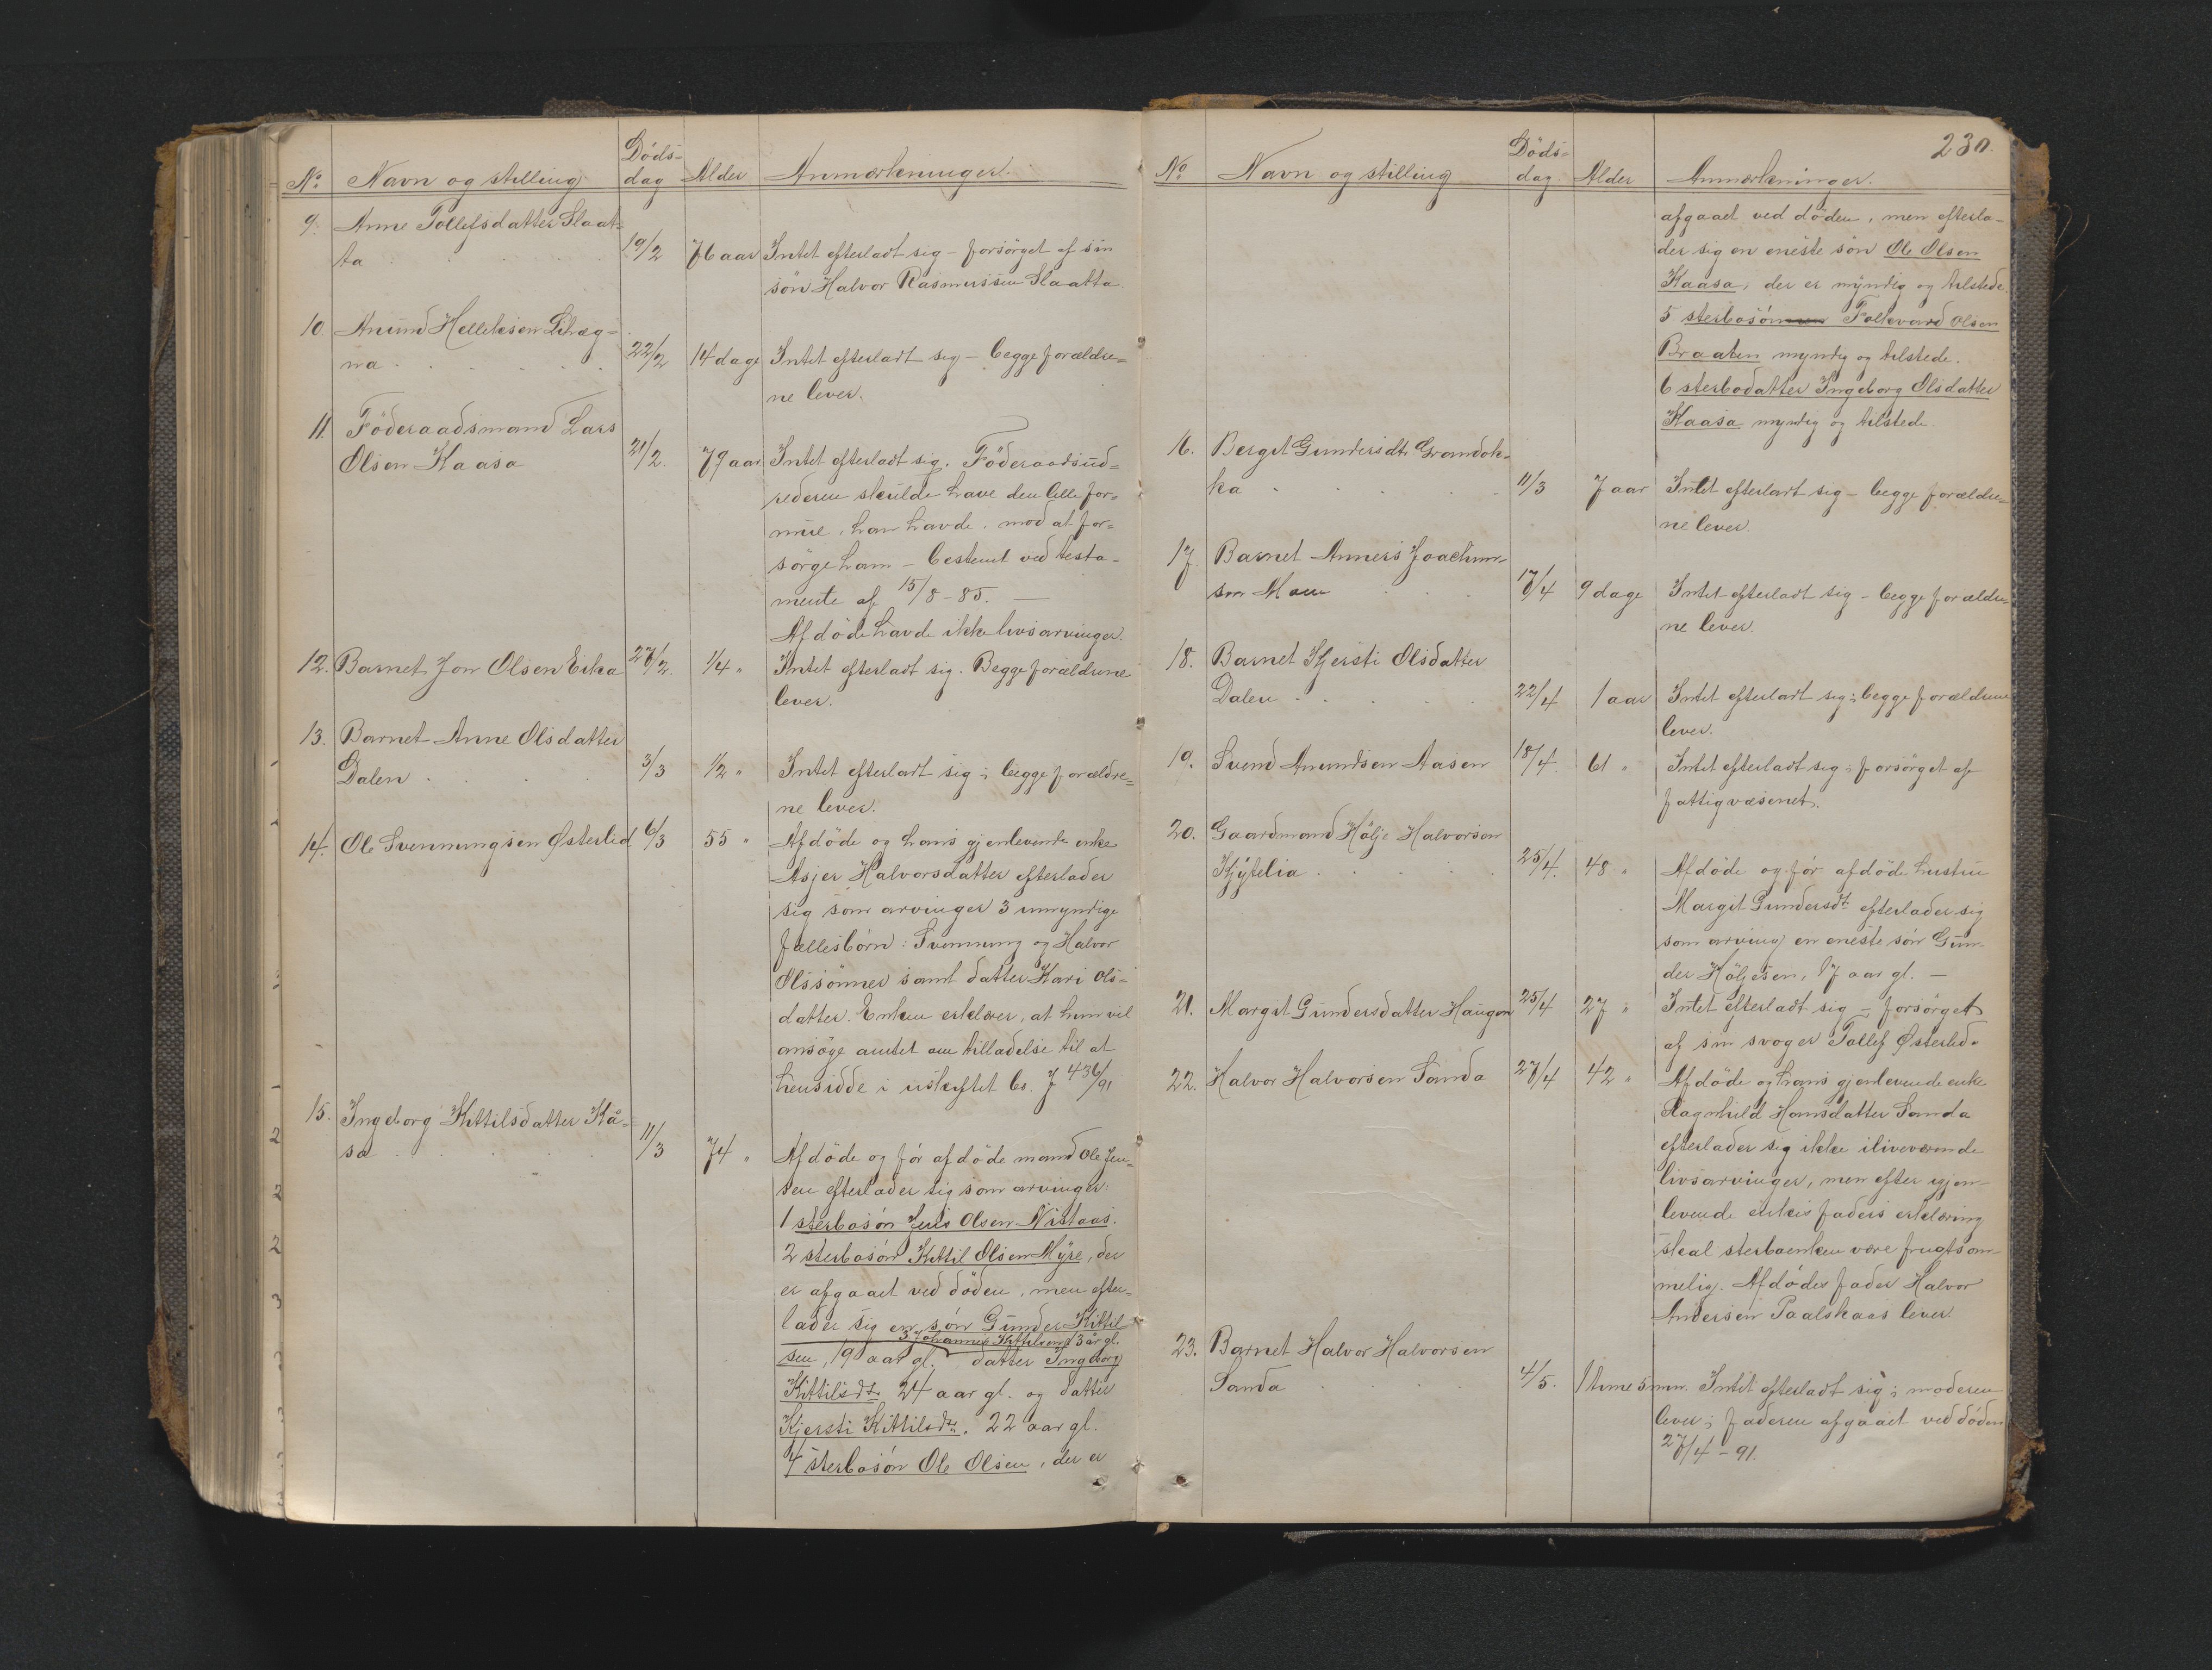 No Navn og stilling Döds-dag Alder Anmærkninger.
9. Anne Tollefsdatter Slaat-
ta 19/2 76 aar Intet efterladt sig - forsörget af sin
sön Halvor Rasmussen Slaatta
10. Anund Helleksen
na 22/2 14 dage Intet efterladt sig - begge forældre=
ne lever.
11. Föderaadsmand Lars
Olsen Kaasa 21/2. 79 aar Intet efterladt sig. Föderaadsud=
rederen skulde have den lille for=
mue, han havde, mod at for=
sörge ham - bestemt ved testa-
mente af 15/8-85. —
Afdöde havde ikke livsarvinger.
12. Barnet Jon Olsen Eika 27/2. 1/4 " Intet efterladt sig. Begge forældrene
lever.
13. Barnet Anne Olsdatter
Dalen 3/3 1/2 " Intet efterladt sig; begge forældre=
ne lever.
14. Ole Svenningsen Østerlid 6/3 55 " Afdöde og hans gjenlevende enke
Asjer Halvorsdatter efterlader
sig som arvinger 3 umyndige
fællesbörn: Svenning og Halvor
Olssönner samt datter Kari Ols-
datter. Enken erklærer, at hun vil
ansöge amtet om tilladelse til at
hensidde i uskiftet bo. J 436/91
15. Ingeborg Kittilsdatter Kå-
sa 11/3 74 " Afdöde og för afdöde mand Ole Jen=
sen efterlader sig som arvinger:
1 sterbosön Jens Olsen Nistaas.
2 sterbosön Kittil Olsen Myre, der
er afgaaet ved döden, men efter=
lader sig en sön Gunder Kittil
3 Johannes Kittilsen 13 år gl.
sen, 19 aar gl. datter Ingeborg
Kittilsdt. 24 aar gl. og datter
Kjersti Kittilsdtr. 22 aar gl.
4 sterbosön Ole Olsen, der er
230.
No Navn og stilling Döds-dag. Alder Anmærkninger.
afgaaet ved döden, men efterla-
der sig en eneste sön Ole Olsen
Kaasa, der er myndig og tilstede.
5 sterbosön Folkvard Olsen
Braaten myndig og tilstede.
6 sterbodatter Ingeborg Olsdatter
Kaasa myndig og tilstede.
16. Bergit Gundersdt. Grandok-
ka 11/3 7 aar Intet efterladt sig - begge forældre=
ne lever
17 Barnet Anners Joachim-
sen Moen 17/4 9 dage Intet efterladt sig - begge forældre-
ne lever.
18. Barnet Kjersti Olsdatter
Dalen 22/4 1 aar Intet efterladt sig; begge forældrene
lever.
19. Svend Anundsen Aasen 18/4. 61 " Intet efterladt sig; forsörget af
fattigvæsenet.
20. Gaardmand Hölje Halvorsen
Kjytelia 25/4. 48 " Afdöde og för afdöde hustru
Margit Gundersdt. efterlader sig
som arving en eneste sön Gun-
der Höljesen, 17 aar gl. —
21. Margit Gundersdatter Haugen 25/4 27 " Intet efterladt sig - forsörget
af sin svoger Tollef Østerlid.
22. Halvor Halvorsen Sanda 27/4 42 " Afdöde og hans gjenlevende enke
Ragnhild Hansdatter Sanda
efterlader sig ikke iliveværende
livsarvinger, men efter gjen-
levende enkes faders erklæring
skal sterboenken være frugtsom-
melig. Afdödes fader Halvor
Andersen Paalskaas lever.
23. Barnet Halvor Halvorsen
Sanda 4/5. 1 time 5 min. Intet efterladt sig; moderen
lever; faderen afgaaet ved döden
27/4 - 91.